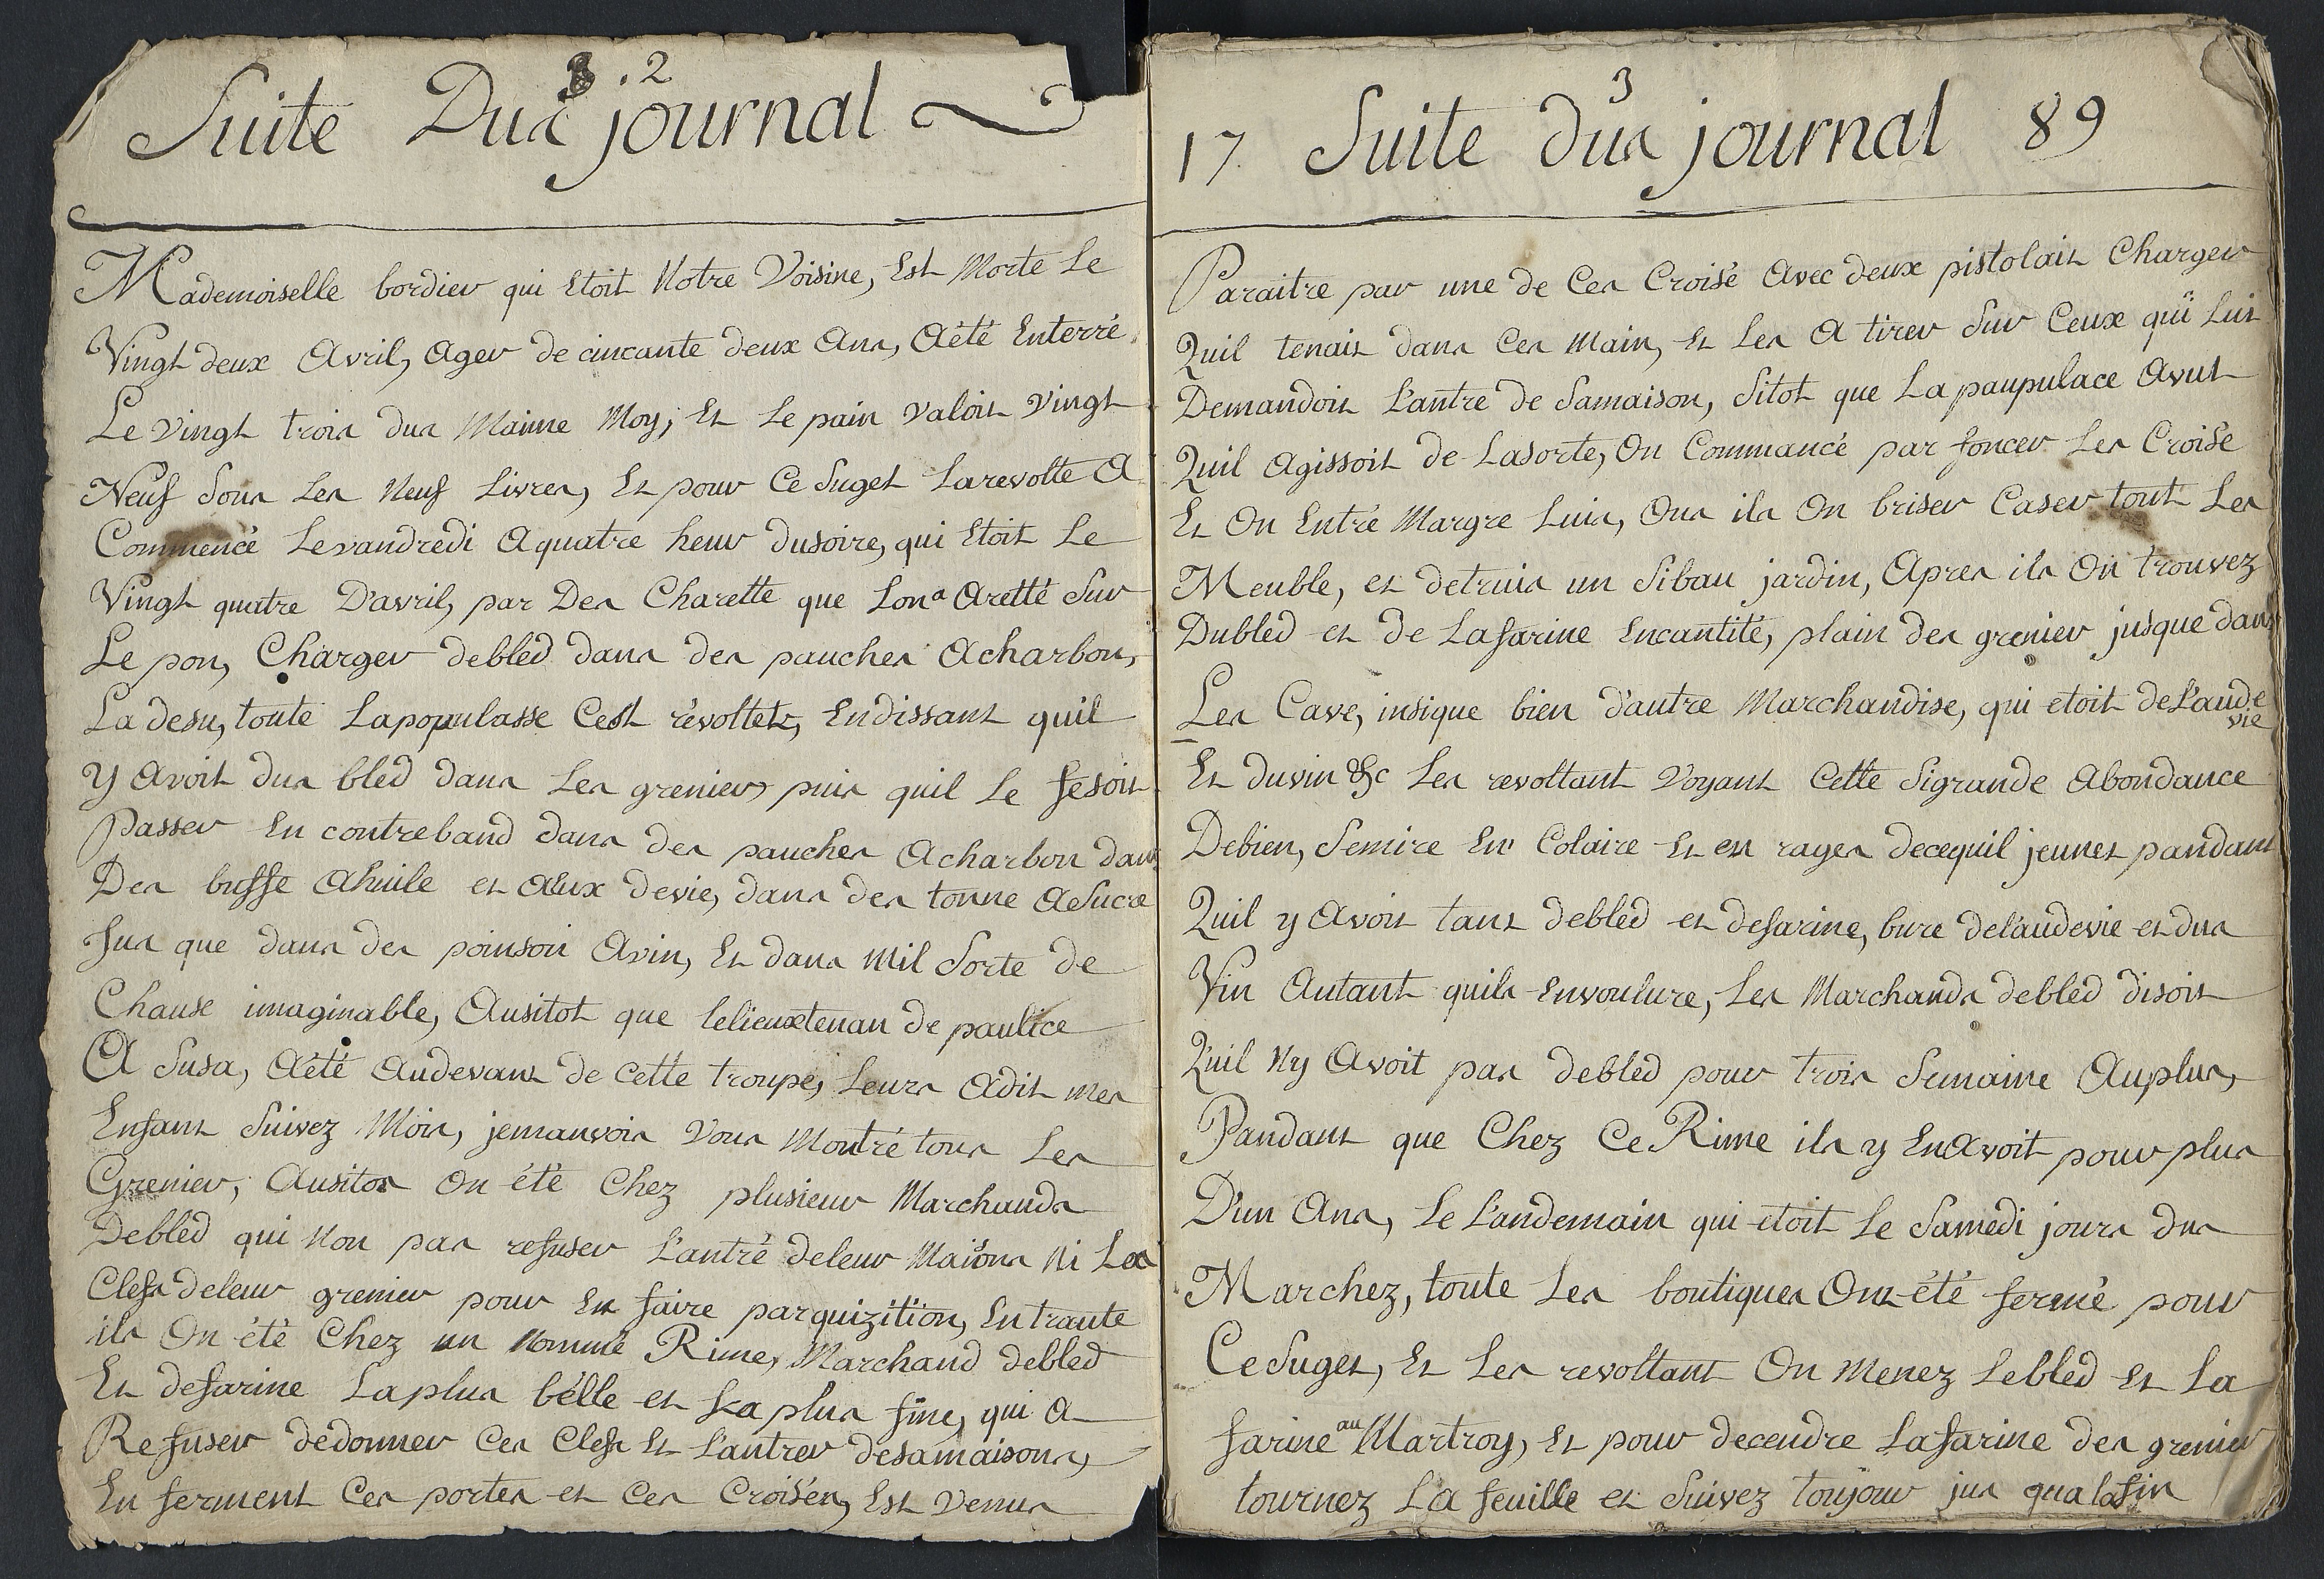 3 . 2
Suite Dus journal
Mademoiselle bordier qui Etoit Notre Voisine, Est Morte Le
Vingt deux Avril, Ager de cincante deux Ans, Aété Enterré
Le Vingt trois dus Maime Moy; Et Le pain Valoit Vingt
Neuf Sous Les Neuf Livres, Et pour Ce Suget Larevolte A
Commencé Levandredi Aquatre heur dusoire, qui Etoit Le
Vingt quatre D'avril, par Des Charette que Lon a Aretté Sur
Le pon, Charger debled dans des pauches Acharbon,
La desu, toute Lapopulasse Cest révolter, Endissant quil
Y Avoit dus bled dans Les grenier, puis quil Le fesoit
Passer En contreband dans des pauches Acharbon dans
Des busse Ahuile et Aux devie, dans des tonne ASucre
Jus que dans des poinson Avin, Et dans Mil Sorte de
Chause imaginable, Ausitot que Lelieuxtenan de paulice
A Susa, Aété Audevant de Cette troupe, Leurs Adit mes
Enfant Suivez Mois, jemanvois Vous Montré tous Les
Grenier, Ausitos On été Chez plusieur Marchands
Debled qui Non pas refuser L'antré deleur Maisons Ni Les
Clefs deleur grenier pour En faire parquizition, Entrante
ils On été Chez un Nommé Rime, Marchand debled
Et defarine Laplus bélle et La plus fine, qui A
Refuser dedonner Ces Clefs Et L'antrer desamaisons,
En ferment Ces portes et Ces Croisés, Est Venus
3
17 Suite dus journal 89
Paraitre par une de Ces Croisé Avec deux pistolait Charger
Quil tenait dans Ces Main, Et Les A tirer Sur Ceux qui Luis
Demandoit L'antre de Samaison, Sitot que La paupulace Avut
Quil Agissoit de Lasorte, On Commancé par foncer Les Croisé
Et On Entré Margre Luis, Ous ils On briser Caser tout Les
Meuble, et detruis un Sibau jardin, Apres ils On trouvez
Dubled et de Lafarine Encantité, plain des grenier jusque dans
Les Cave, insique bien d'autre Marchandise, qui etoit deL'aude
vie
Et duvin &c Les revoltant Voyant Cette Sigrande Abondance
Debien, Semire En Colaire Et en rages decequil jeunet pandant
Quil y Avoit tant debled et defarine, bure delaudevie et dus
Vin Autant quils Envoulure, Les Marchands debled disoit
Quil Ny Avoit pas debled pour trois Semaine Auplus,
Pandant que Chez Ce Rime ils y EnAvoit pour plus
D'un Ans, Le L'andemain qui etoit Le Samedi jours dus
Marchez, toute Les boutiques Ont été fermé pour
CeSuget, Et Les revoltant On Menez Lebled Et La
farine au Martroy, Et pour decendre Lafarine des grenier
tournez La feuille et Suivez toujour jus qualafin